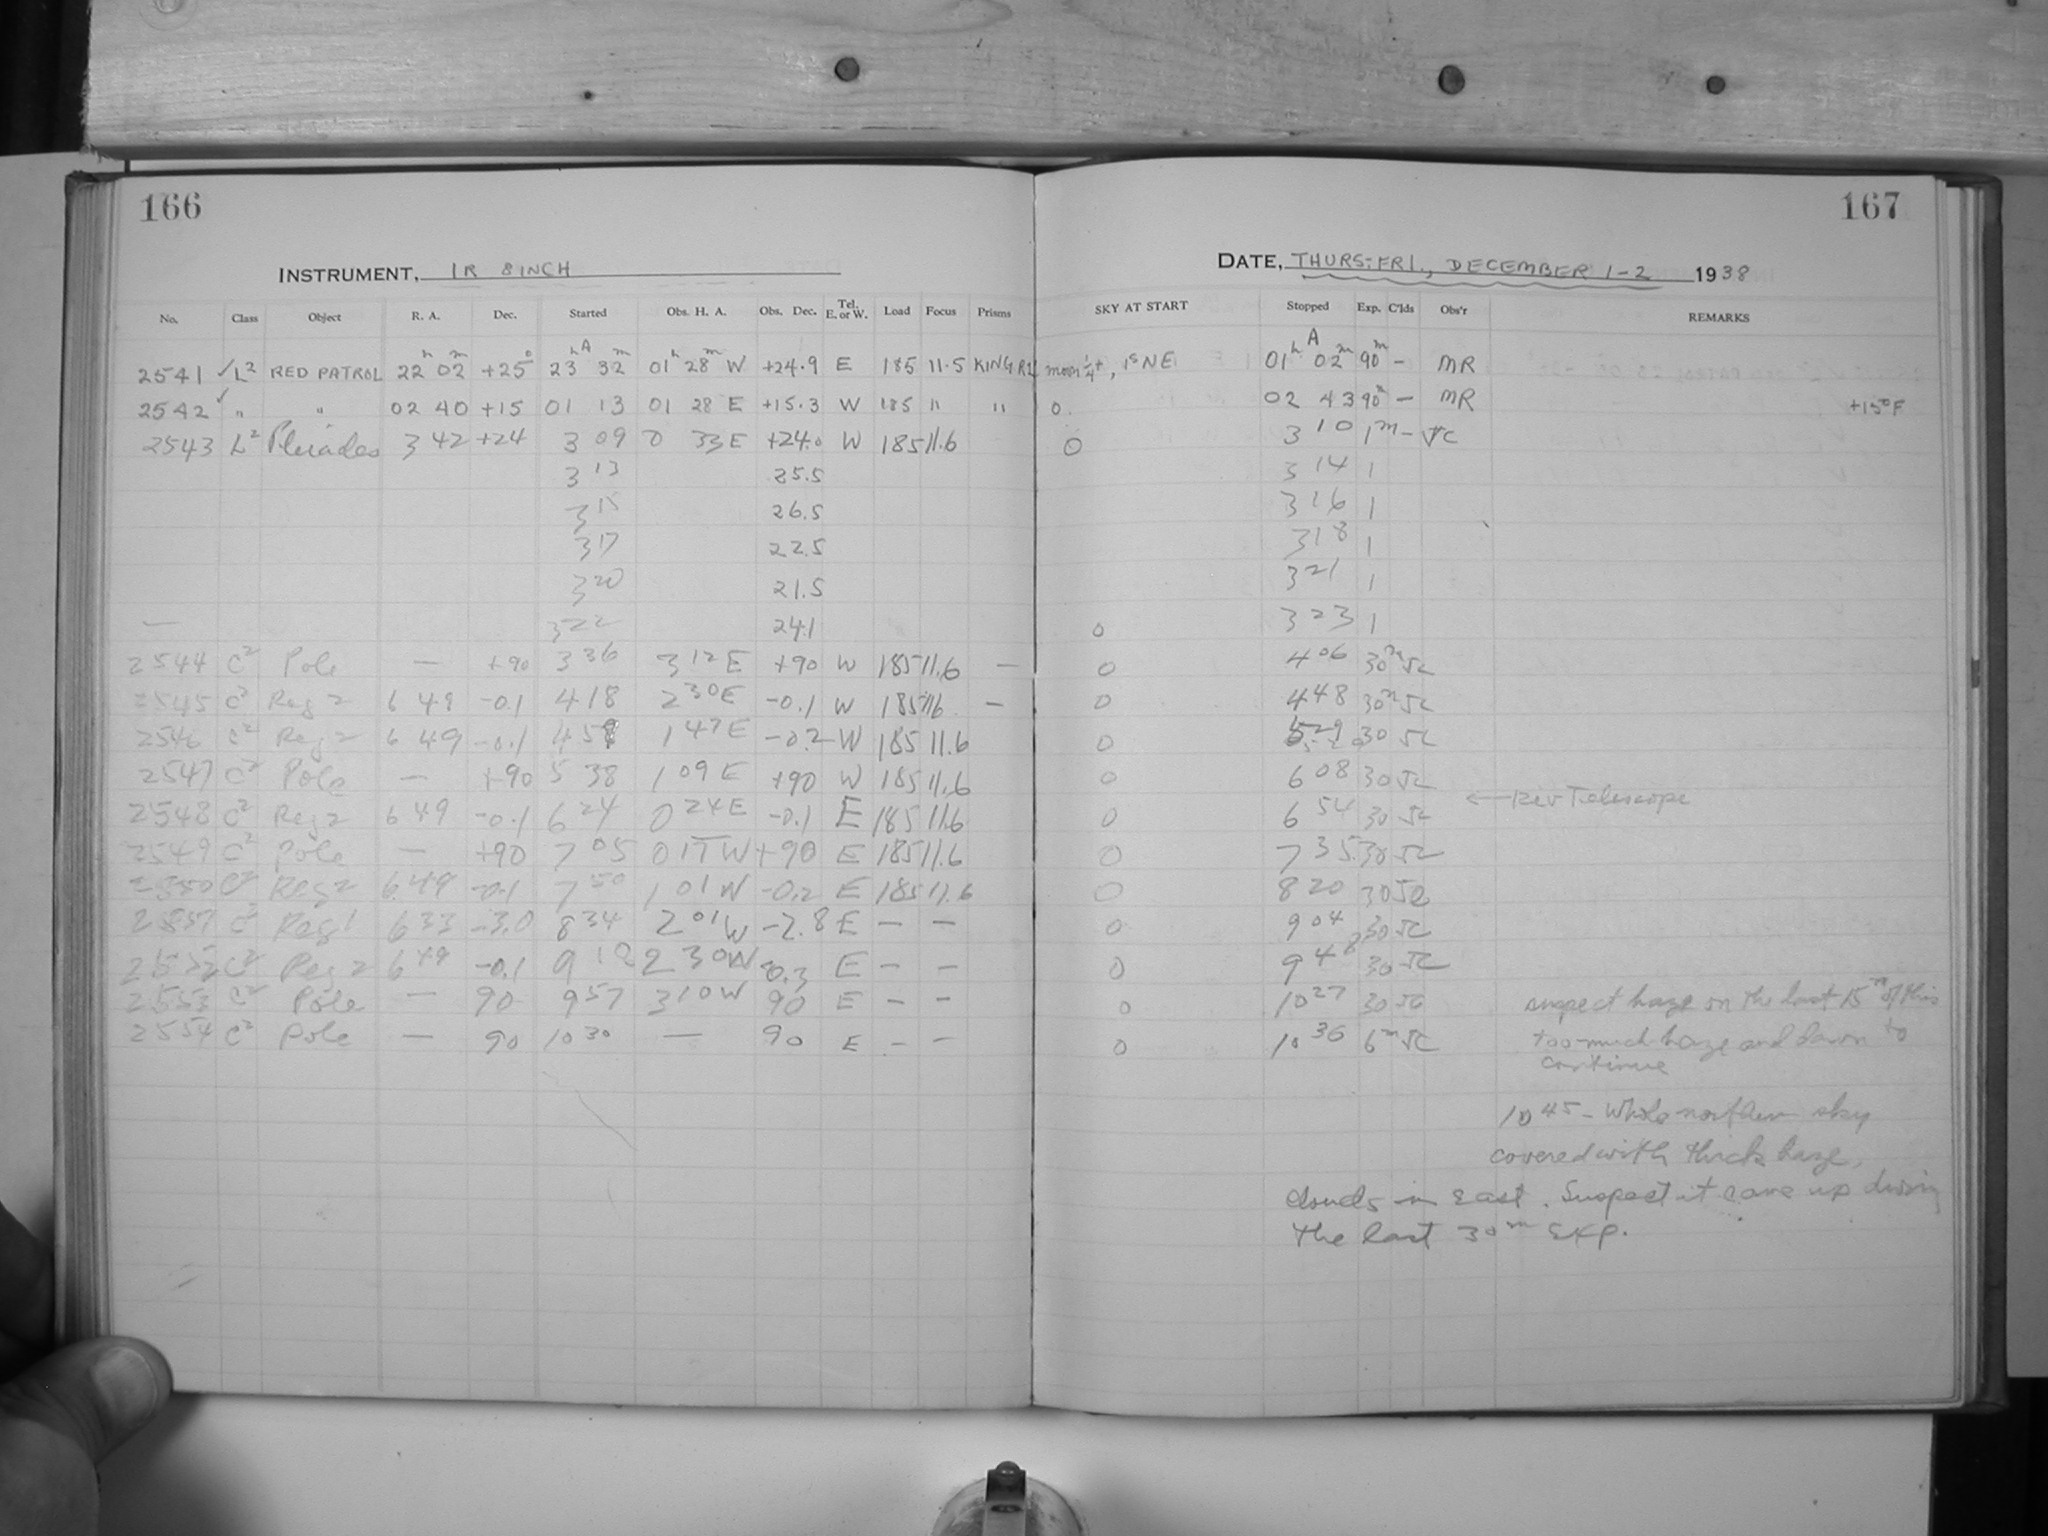 166
167
INSTRUMENT, IR 8 INCH
DATE, THURS-FRI., DECEMBER 1-2 1938
No. Class Object R. A. Dec. Started Obs. H. A. Obs. Dec. Tel. E. or W. Load Focus Prisms SKY AT START Stopped Exp. C'lds Obs'r REMARKS
2541 ✓ L² RED PATROL 22ʰ 02ᵐ +25° 23ʰ A 32ᵐ 01ʰ 28ᵐ W +24.9 E 185 11.5 KING moon 1/4+, 1ˢ NE 01ʰ A 02ᵐ 90ᵐ – MR
2542 ✓ " " 02 40 +15 01 13 01 28 E +15.3 W 185 " " 0. 02 43 90ᵐ – MR +15°F
2543 L² Pleiades 3 42 +24 3 09 0 33 E +24.0 W 185 11.6 0 3 10 1ᵐ – JC
3 13 25.5 3 14 1
3 15 26.5 3 16 1
3 17 22.5 3 18 1
3 20 21.5 3 21 1
— 3 22 24.1 0 3 23 1
2544 C² Pole — +90 3 36 3 12 E +90 W 185 11.6 — 0 4 06 30ᵐ JC
2545 C² Reg 2 6 49 -0.1 4 18 2 30 E -0.1 W 185 116 — 0 4 48 30ᵐ JC
2546 C² Reg 2 6 49 -0.1 4 59 1 47 E -0.2 W 185 11.6 0 5 29 30 JC
2547 C² Pole — +90 5 38 1 09 E +90 W 185 11.6 0 6 08 30 JC
← Rev Telescope
2548 C² Reg 2 6 49 -0.1 6 24 0 24 E -0.1 E 185 11.6 0 6 54 30 JC
2549 C² Pole — +90 7 05 0 17 W +90 E 185 11.6 0 7 35 30 JC
2550 C² Reg 2 6 49 -0.1 7 50 1 01 W -0.2 E 185 11.6 0 8 20 30 JC
C² Reg 1 6 33 -3.0 8 34 2 01 W -2.8 E — — 0 9 04 30 JC
2552 C² Reg 2 6 49 -0.1 9 18 2 30 W -0.3 E — — 0 9 48 30 JC
2553 C² Pole — 90 9 57 3 10 W 90 E — — 0 10 27 30 JC suspect haze on the last 15ᵐ of this
2554 C² Pole — 90 10 30 — 90 E — — 0 10 36 6ᵐ JC too much haze and dawn to
continue
10 45 – Whole northern sky
covered with thick haze,
clouds in east. Suspect it came up during
the last 30ᵐ exp.